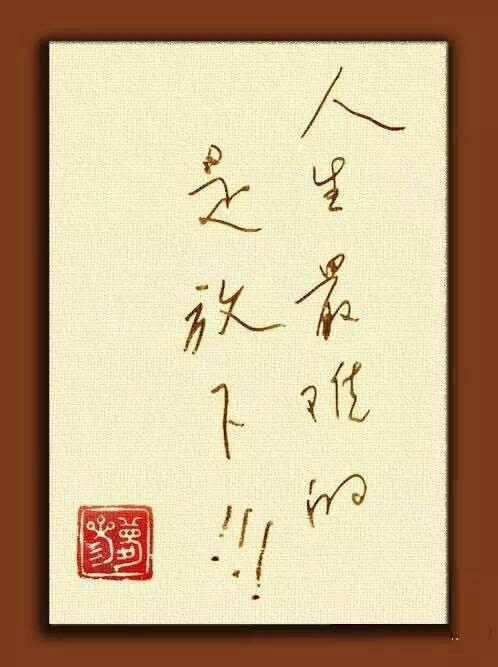 人生最难的
是放下!!!